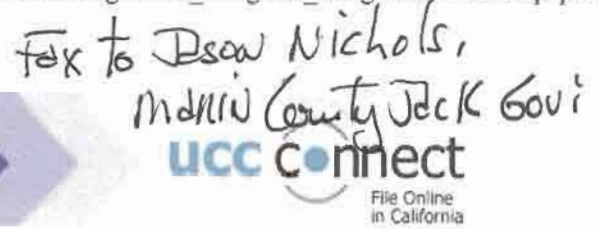 Fax to Jason Nichols,
Marin County Jack Govi
ucc connect
File Online
in California